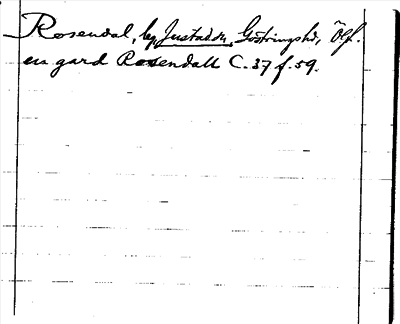 Rosendal, by Justadon, Göstringshd, Ög.
en gard Rosendall C. 37 f. 59.